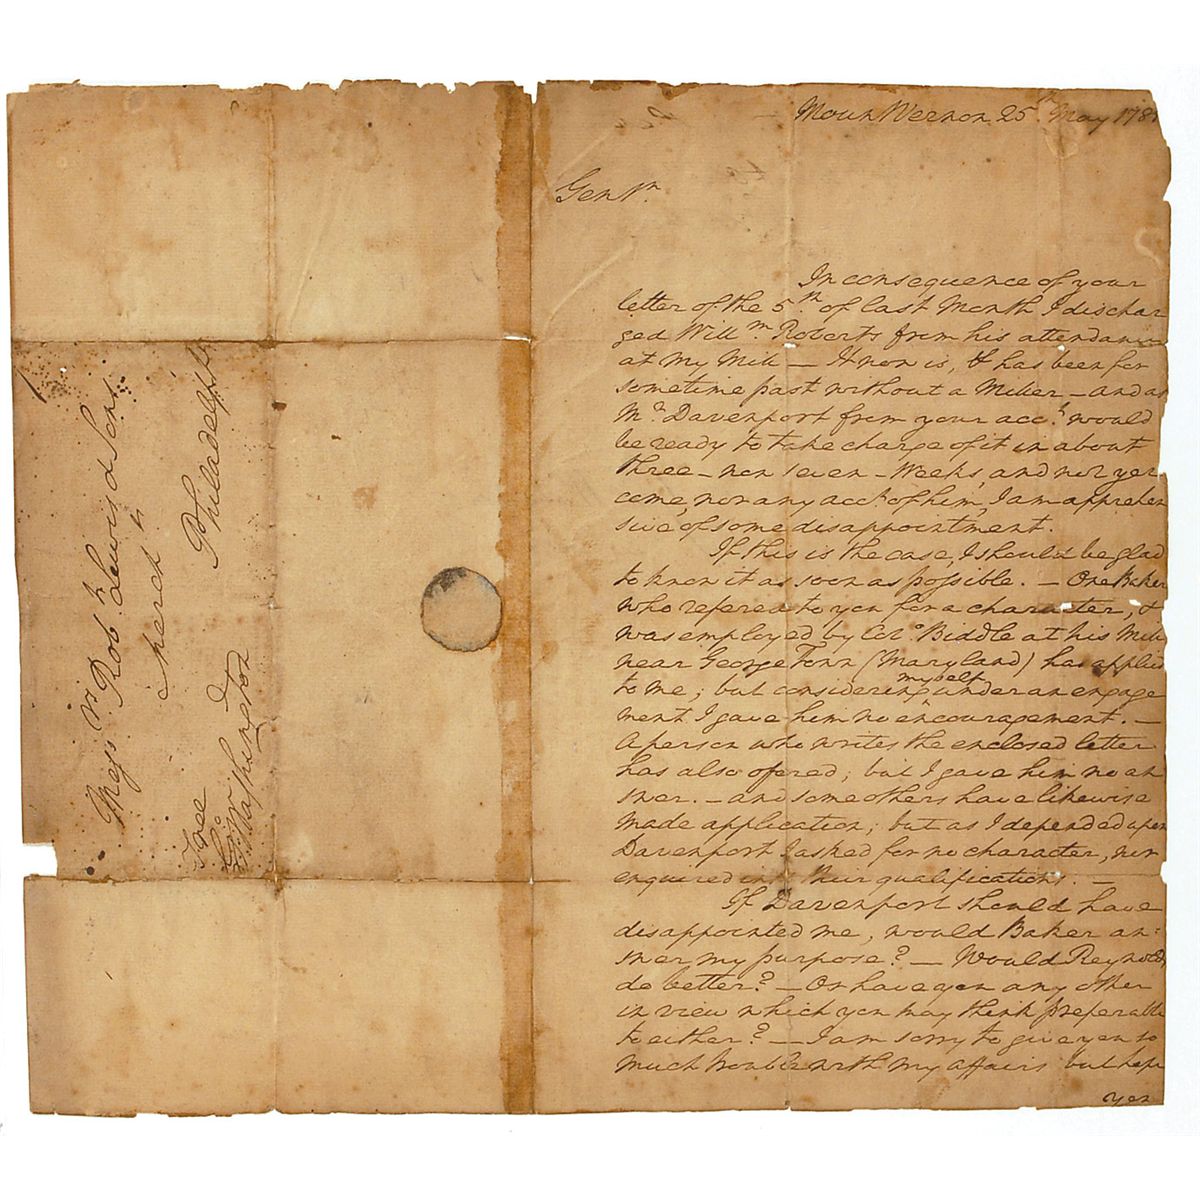 Mount Vernon 25th May 178
Gentn.
In consequence of your
letter of the 5th of last Month I dischar
ged Willm Roberts from his attendance
at my Mill — It now is, & has been for
sometime past without a Miller — and as
Mr Davenport from your acct. would
be ready to take charge of it in about
three — now seven — Weeks, and not yet
come, nor any acct. of him, I am apprehen
sive of some disappointment.
If this is the case, I should be glad
to know it as soon as possible. — One Baker
who refered to you for a character, &
was employed by Colo. Biddle at his Mill
near George Town (Maryland) has applied
to me; but considering myself under an engage
ment I gave him no encouragement. —
A person who writes the enclosed letter
has also offered; but I gave him no an
swer. — and some others have likewise
made application; but as I depended upon
Davenport I asked for no character, nor
enquired into their qualifications. —
If Davenport should have
disappointed me, would Baker an=
swer my purpose? — Would Reynolds
do better? — Or have you any other
in view which you may think preferable
to either? — I am sorry to give you so
much trouble with my affairs but hope
you
Messrs. Robt. Lewis & Sons
Merchts
Philadelphia
Free
Go: Washington